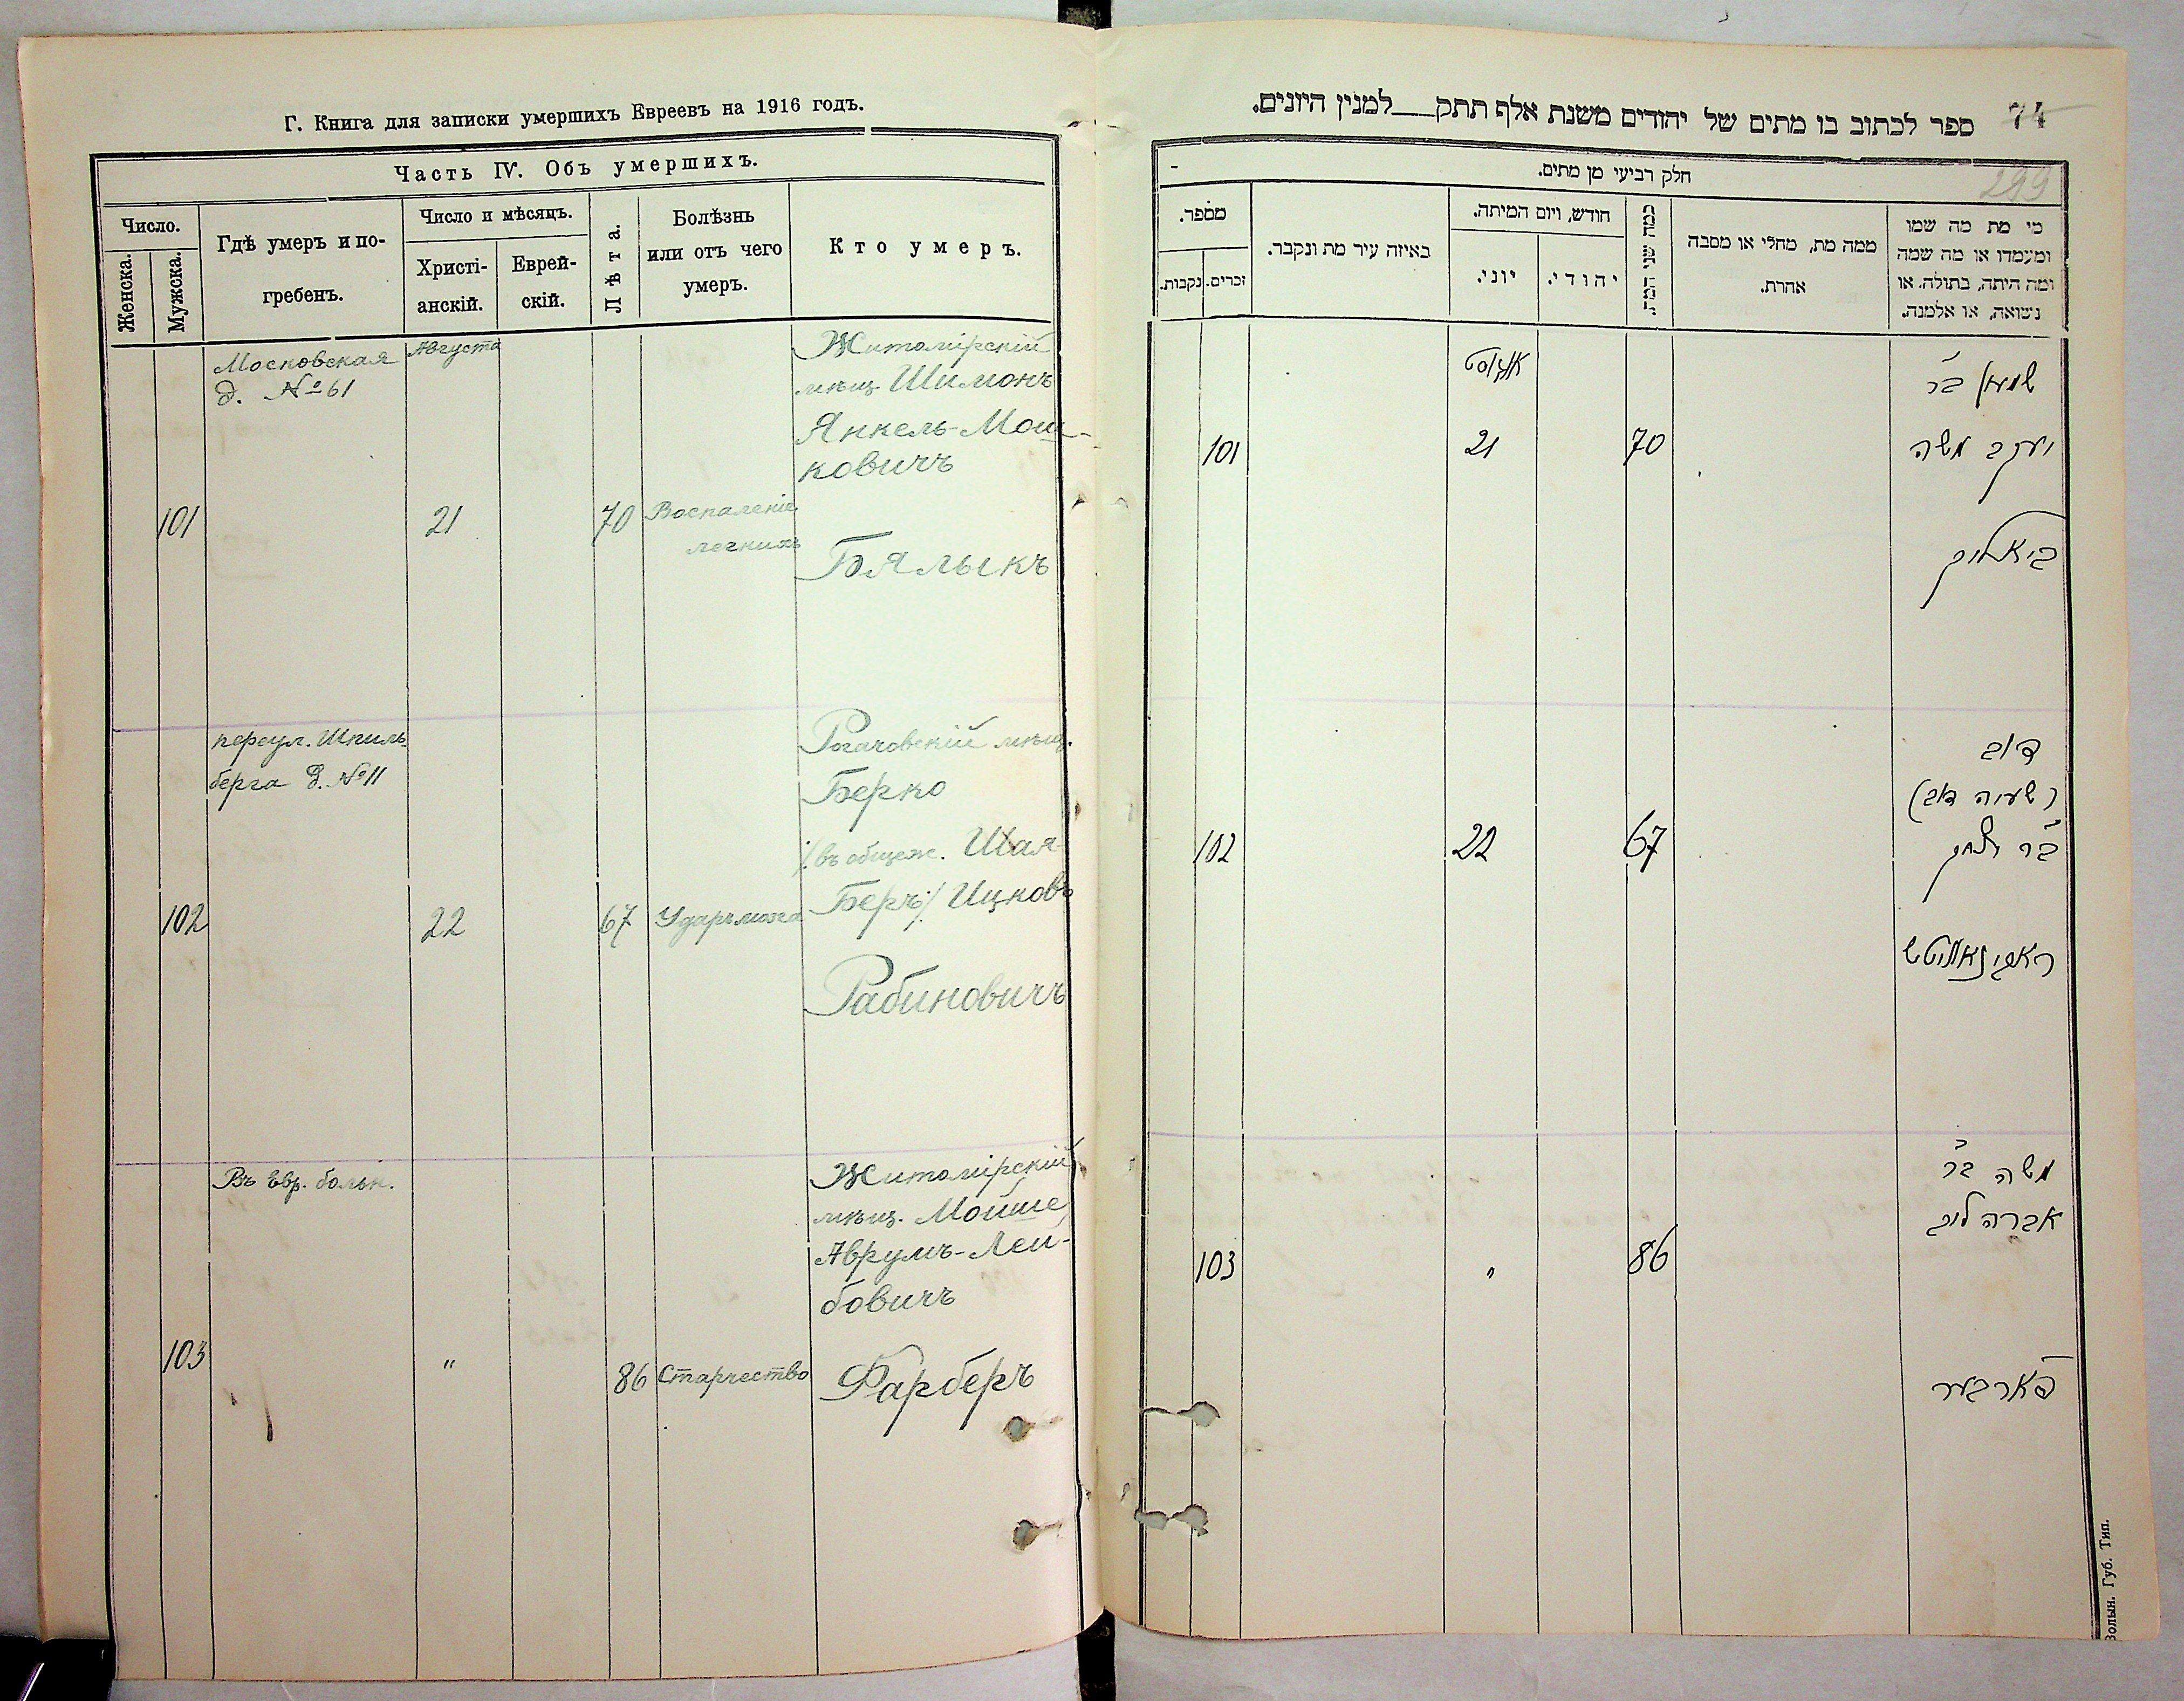 Г. Книга для записки умершихъ Евреевъ на 1916 годъ.
Часть IV. Объ умершихъ.
Число.
Женска.
Мужска.
Гдѣ умеръ и по-
гребенъ.
Число и мѣсяцъ.
Христі-
анскій.
Еврей-
скій.
Лѣта.
Болѣзнь
или отъ чего
умеръ.
Кто умеръ.
Московская
д. № 61
Августа
Житомірскій
мѣщ. Шимонъ
Янкель-Мош-
ковичъ
101
21
70
Воспаленіе
легкихъ
Бялыкъ
переул. Шпиль-
берга д. № 11
Рогачовскій мѣщ.
Берко
/:въ общеж. Шая-
Беръ:/ Ицковъ
102
22
67
Ударъ мозга
Рабиновичъ
Въ Евр. больн.
Житомірскій
мѣщ. Мойше
Аврумъ-Лей-
бовичъ
103
"
86
Старчество
Фарберъ
74
299
ספר לכתוב בו מתים של יהודים משנת אלף תתק___למנין היונים.
חלק רביעי מן מתים.
מספר.
נקבות.
זכרים.
באיזה עיר מת ונקבר.
חודש, ויום המיתה.
יוני.
יהודי.
כמה שני המת.
ממה מת, מחלי או מסבה
אחרת.
מי מת מה שמו
ומעמדו או מה שמה
ומה היתה, בתולה, או
נשואה, או אלמנה.
אוגוסט
שמעון בר
יעקב משה
101
21
70
ביאליק
דוב
(ישעיה דוב)
בר יצחק
102
22
67
ראבינאוויטש
משה בר
אברהם ליב
103
"
86
פארבער
Волын. Губ. Тип.